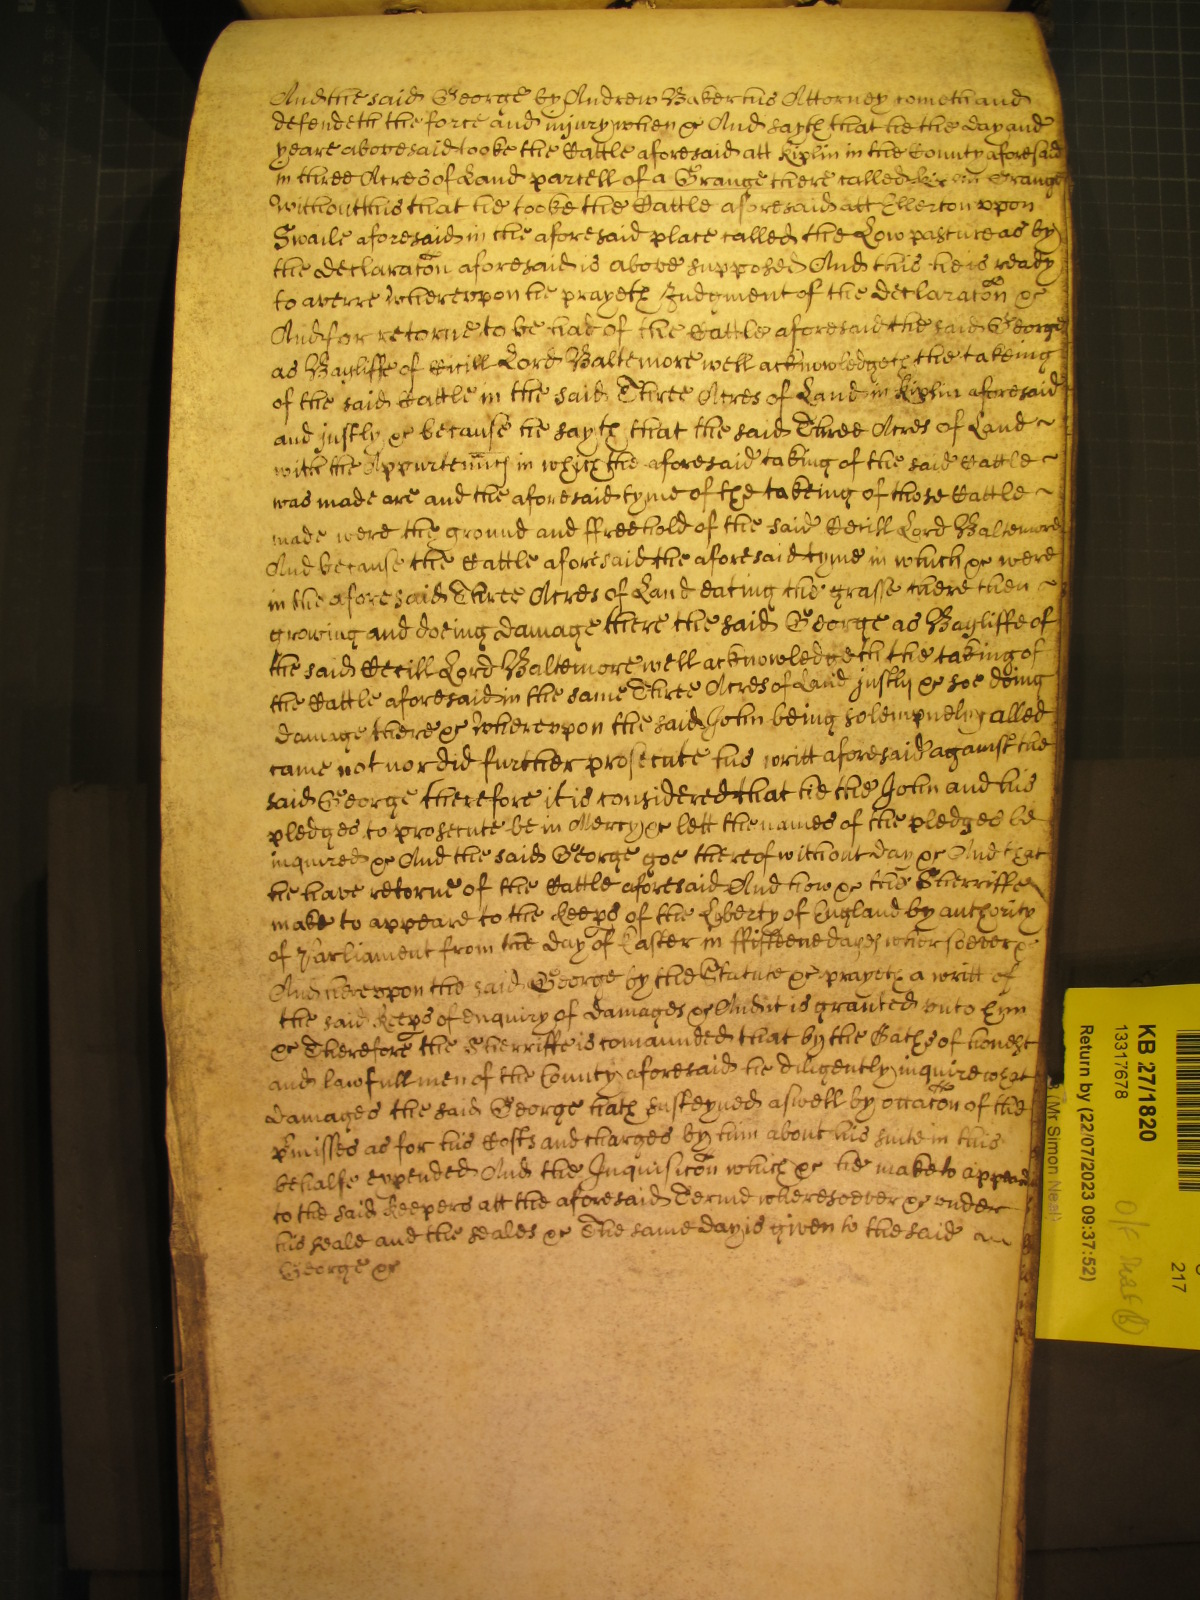 And the said George by Andrew Baker his Attorney cometh and
defendeth the force and injury when &c And sayth that he the day and
yeare abovesaid tooke the Cattle aforesaid att Kiplin in the County aforesaid
in three Acres of Land parcell of a Grange there called Grange
Without this that he tooke the Cattle aforesaid att Ellerton vpon
Swaile aforesaid in the aforesaid place called the Low pasture as by
the declaracon aforesaid is above supposed And this he is ready
to averre Wherevpon he prayeth Judgment of the declaracon &c
And for retorne to be had of the Cattle aforesaid the said George
as Bayliffe of Cecill Lord Baltemore well acknowledgeth the takeing
of the said Cattle in the said Three Acres of Land in Kiplin aforesaid
and justly &c because he sayth that the said Three Acres of Land ~
with the Appurtennces in which the aforesaid taking of the said Cattle ~
was made are and the aforesaid tyme of the takeing of those Cattle ~
made were the ground and ffreehold of the said Cecill Lord Baltemore
And because the Cattle aforesaid the aforesaid tyme in which &c were
in the aforesaid Three Acres of Land eating the grasse there then ~
growing and doeing damage there the said George as Bayliffe of
the said Cecill Lord Baltemore well acknowledgeth the taking of
the Cattle aforesaid in the same Three Acres of Land justly &c soe doing
damage there &c Wherevpon the said John being solempnely called
came not nor did further prosecute his writt aforesaid against the
said George therefore it is considered that he the John and his
pledges to prosecute be in Mercy &c lett the names of the pledges be
inquired &c And the said George goe thereof without day &c And that
he have retorne of the Cattle aforesaid And how &c the Sherriffe
make to appeare to the keeps of the Liberty of England by authority
of Parliament from the day of Easter in ffifteene dayes wher soever &c
And herevpon the said George by the Statute &c prayeth a writt of
the said keeps of enquiry of damages &c And it is granted vnto him
&c Therefore the Sherriffe is comaunded that by the Oaths of honest
and lawfull men of the County aforesaid he diligently inquire what
damages the said George hath susteyned aswell by occacon of the
pmisses as for his Costs and charges by him about his suite in this
behalfe expended And the Inquisicon which &c he make to appeare
to the said keepers att the aforesaid Terme wheresoever &c under
his seale and the seales &c The same day is given to the said
George &c
KB 27/1820
13317678
Return by (22/07/2023 09:37:52)
(Mr Simon Neal)
217